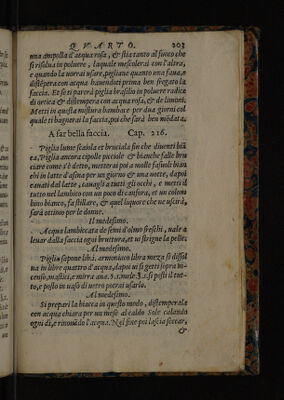 QVARTO. 203
una ampolla d'acqua rosa, & stia tanto al fuoco che
si risolua in poluere, laquale mescolerai con l'altra,
e quando la uorrai usare, pigliane quanto una faua, e
distepera con acqua hauendoti prima ben fregato la
faccia. Et se ti parerà piglia brasilio in poluere radice
di ortica & distempera con acqua rosa, & de limoni.
Metti in questa mistura bambace per due giorni col
quale ti bagnerai la faccia, poi che sarà ben mõdata.
A far bella faccia. Cap. 216.
Piglia lume scaiola et bruciala fin che diuenti biã
ca, Piglia ancora cipolle picciole & bianche falle bru
ciare come s'è detto, metterai poi a molle fasuoli biã
chi in latte d'asina per un giorno & una notte, dapoi
cauati dal latte, cauagli a tutti gli occhi, e metti il
tutto nel lambico con un poco di canfora, et un colom
bino bianco, fa stillare, & quel liquore che ne uscirà,
sarà ottimo per le donne.
Il medesimo.
Acqua lambiccata de semi d'olmo freschi, uale a
leuar dalla faccia ogni bruttura, et ui strigne la pelle.
Al medesimo.
Piglia sapone lib. i. armoniaco libra meza si dissol
ua in libre quattro d'acqua, dapoi ui si getti sopra in-
censo, mastici, e mirra ana. 3. i. nitre 3. ii. si pesti il tut-
to, e posto in uaso di uetro potrai usarlo.
Al medesimo.
Si prepari la biacca in questo modo, distemperala
con acqua chiara per un mese al caldo Sole colando
ogni dì, e rinouãdo l'acqua. Nel fine poi lascia seccar,
&